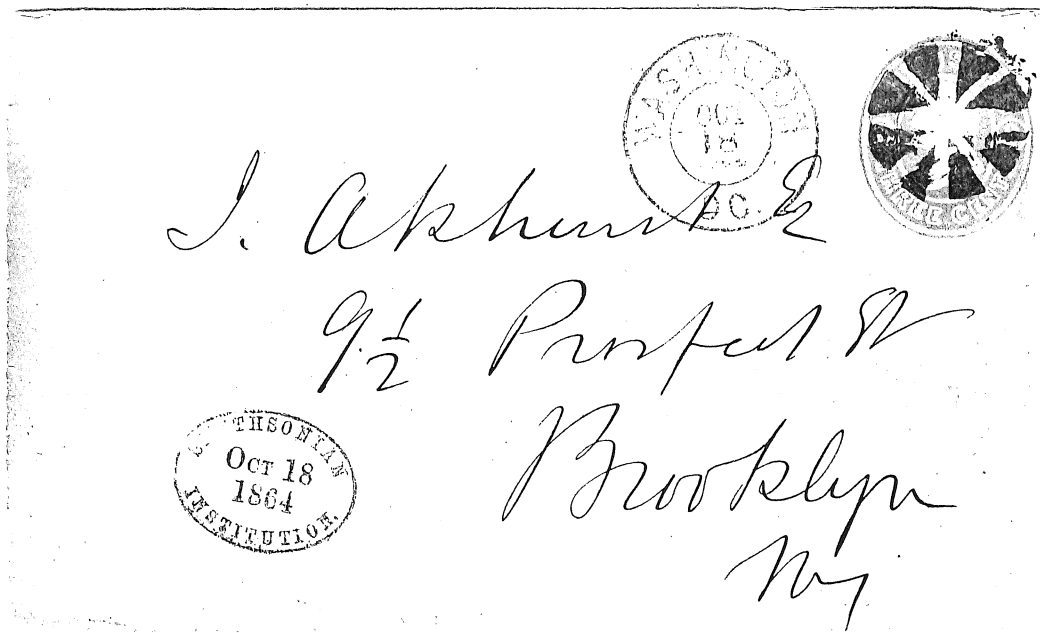 WASHINGTON
OCT
18
D.C.
THREE CENTS
J. Akhurst Esq
9 1/2 Prospect St
Brooklyn
NY
SMITHSONIAN
OCT 18
1864
INSTITUTION.